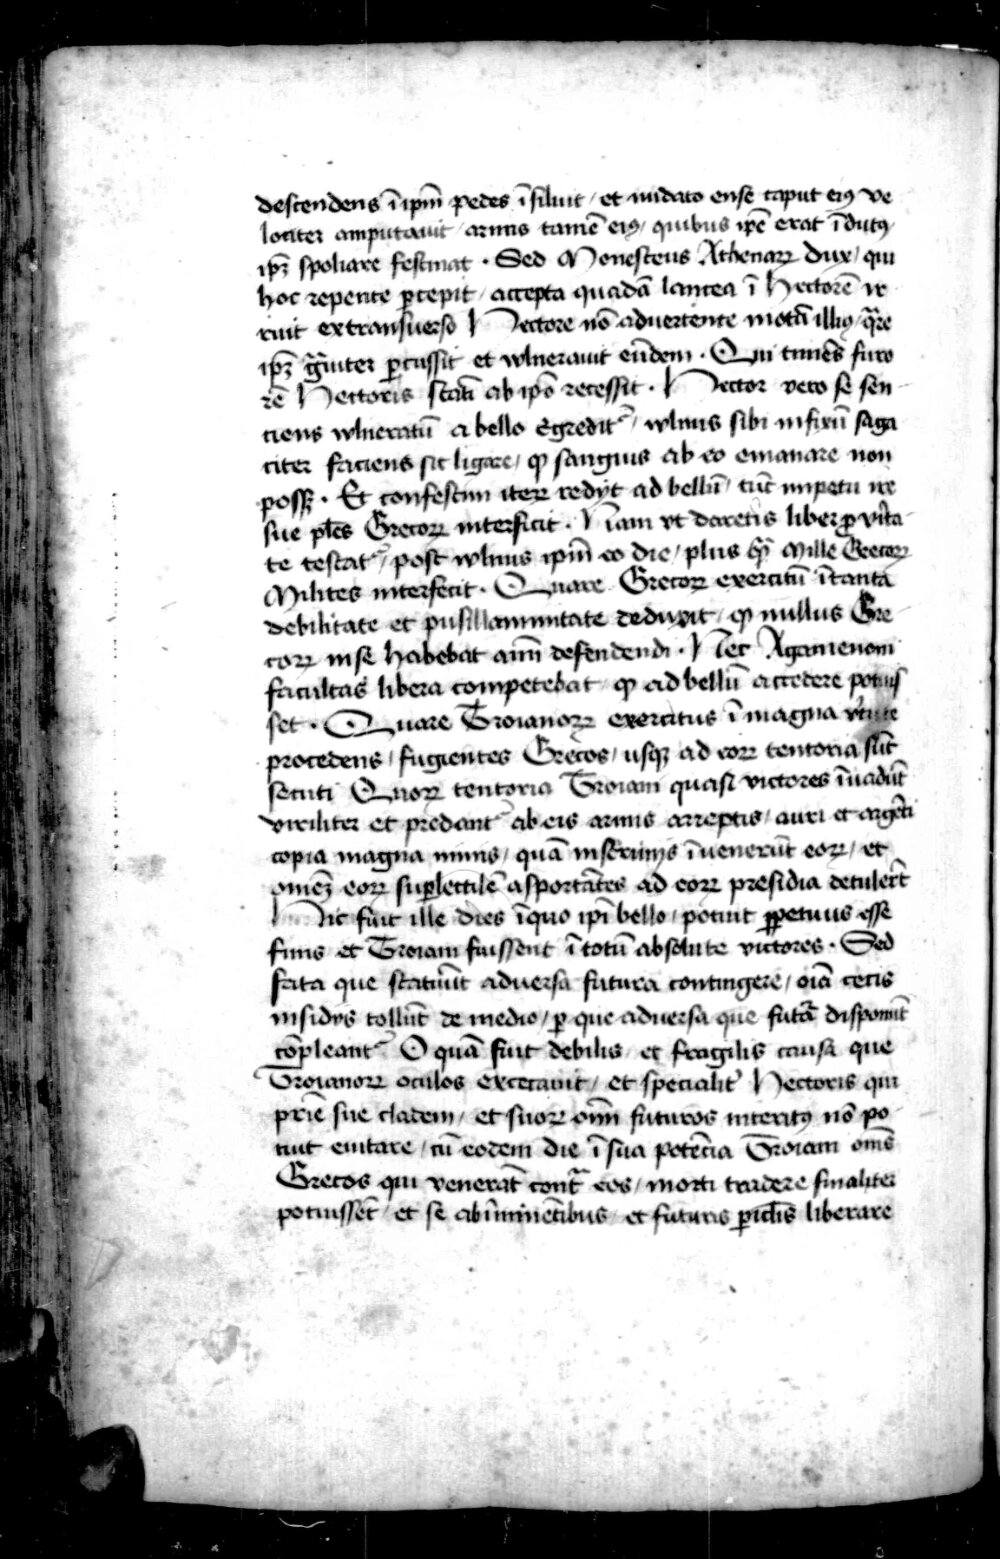 descendens ī ipm̄ pedes īsiluit / et nudato ense caput eiꝰ ve
lociter amputauit / armis tamē eiꝰ / quibus ipē erat īdutꝰ
ipꝫ spoliare festinat · Sed Monesteus Athenaꝝ dux / qui
hoc repente ꝑcepit / accepta quadā lancea ī Hectorē ir
ruit extransuerso Hectore nō aduertente motū illiꝰ / qͣre
ipꝫ gͣuiter ꝑcussit et wlnerauit eūdem · Qui timēs furo
rē Hectoris statī ab ipō recessit · Hector vero se sen
ciens wlneratū a bello egredit᷑ / wlnus sibi infixū saga
citer faciens sic ligare / ꝙ sanguis ab eo emanare non
possꝫ · Et confestim iteꝝ redijt ad bellū / tūc impetu ire
sue pl̄es Grecoꝝ interficit · Nam vt daretis liber ꝓ vīta
te testat᷑ / post wlnus ipm̄ eo die / plus qͣꝫ Mille Grecoꝝ
Milites interfecit · Quare Grecoꝝ exercitū ītanta
debilitate et pusillanimitate deduxit / ꝙ nullus Gre
coꝝ inse habebat aīm̄ defendendi · Nec Agamenoni
facultas libera competebat ꝙ ad bellū accedere potuis
set · Quare Troianoꝝ exercitus ī magna vītute
procedens / fugientes Grecos / usqꝫ ad eoꝝ tentoria sūt
secuti Quoꝝ tentoria Troiani quasi victores īuadūt
viriliter et predant᷑ ab eis armis arreptis / auri et argēti
copia magna nimis / quā inscrinijs īuenerūt eoꝝ / et
omēꝫ eoꝝ suꝑlectilē asportātes ad eoꝝ presidia detulerūt
Hic fuit ille dies īquo ipī bello / potuit ꝑpetuus esse
finis et Troiani fuissent ī totū absolute victores · Sed
fata que statuūt aduersa futura contingere / oīa cecis
insidijs tollūt de medio / ꝑ que aduersa que futā disponūt
cōpleant᷑ O quā fuit debilis et fragilis causa que
Troianoꝝ oculos excecauit / et specialit᷑ Hectoris qui
prīe sue cladem / et suoꝝ om̄ futuros interitꝰ nō po
tuit euitare / cū eodem die ī sua potēcia Troiani omēs
Grecos qui venerāt contͣ eos / morti tradere finaliter
potuissēt / et se ab īminētibus / et futuris ꝑicl̄is liberare